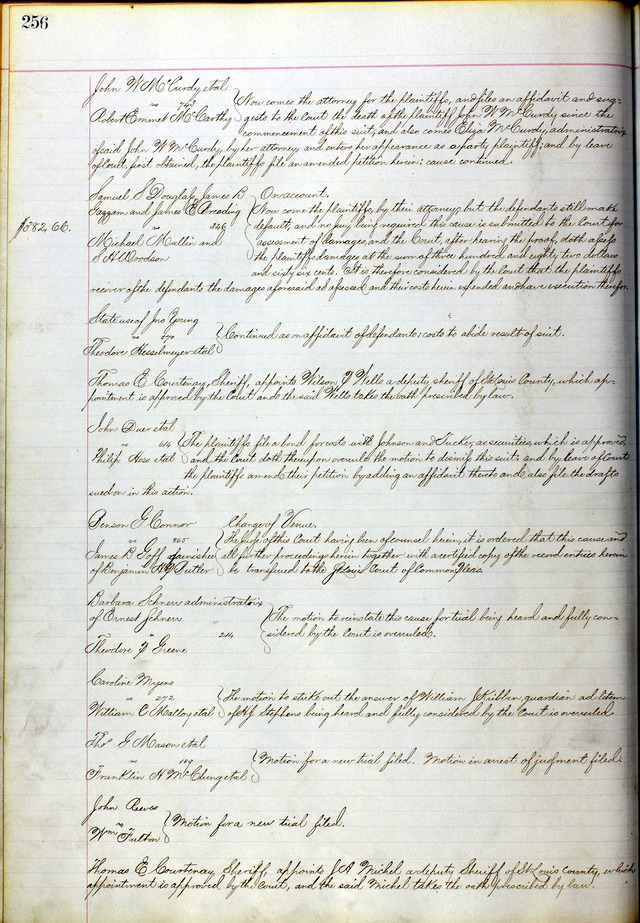 256
John W McCurdy, et al
vs 743
Robert Emmet McCarthy
Now comes the attorney for the plaintiffs, and files an affidavit and sug-
gests to the Court the death of the plaintiff John W McCurdy since the
commencement of this suit, and also comes Eliza McCurdy, administratrix
of said John W McCurdy, by her attorney, and enters her appearance as a party plaintiff; and by leave
of Court first obtained, the plaintiffs file an amended petition herein: cause continued.
Samuel S Douglass, James B
Gazzam and James E Breading
vs 246
Michael Mullin and
S H Woodson
$382.66.
On account.
Now come the plaintiffs, by their attorney, but the defendants still make
default, and no jury being required this cause is submitted to the Court for
assessment of damages, and the Court, after hearing the proof, doth assess
the plaintiffs damages at the sum of three hundred and eighty two dollars
and sixty six cents. It is therefore considered by the Court that the plaintiffs
recover of the defendants the damages aforesaid as assessed and their costs herein expended and have execution therefor.
State use of Jno Young
vs 570
Theodore Hesselmeyer et al
Continued as on affidavit of defendants: costs to abide result of suit.
Thomas E Courtenay, Sheriff, appoints Wilson J Wells a deputy sheriff of St Louis County, which ap-
pointment is approved by the Court and the said Wells takes the oath prescribed by law.
John Duer et al
vs 614
Philip Hoss et al
The plaintiffs file a bond for costs with Johnson and Tucker, as securities, which is approved,
and the Court doth thereupon overrule the motion to dismiss this suit; and by leave of Court
the plaintiffs amend their petition by adding an affidavit thereto and also file the drafts
sued on in this action.
Benson G Connor
vs 365
James B Goff garnishee
of Benjamin Butler
Change of Venue.
The judge of this Court having been of counsel herein, it is ordered that this cause and
all further proceedings herein together with a certified copy of the record entries herein
be transferred to the St Louis Court of Common Pleas.
Barbara Schnerr administratrix
of Ernest Schnerr
vs 214
Theodore Y Greene
The motion to reinstate this cause for trial being heard and fully con-
sidered by the Court is overruled.
Caroline Myers
vs 272
William C Malloy et al
The motion to strike out the answer of William J Kribben, guardian ad litem
of Stephens being heard and fully considered by the Court is overruled
Thos G Mason et al
vs 189
Franklin H McClung et al
Motion for a new trial filed. Motion in arrest of judgment filed
John Reeves
vs
Wm Fulton
Motion for a new trial filed.
Thomas E Courtenay, Sheriff, appoints J A Michel a deputy Sheriff of St Louis county, which
appointment is approved by the Court, and the said Michel takes the oath prescribed by law.